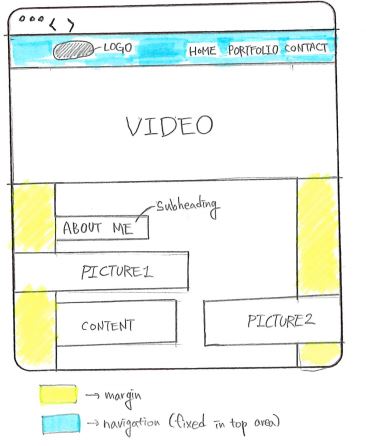 LOGO HOME PORTFOLIO CONTACT
VIDEO
Subheading
ABOUT ME
PICTURE1
CONTENT PICTURE2
→ margin
→ navigation (fixed in top area)